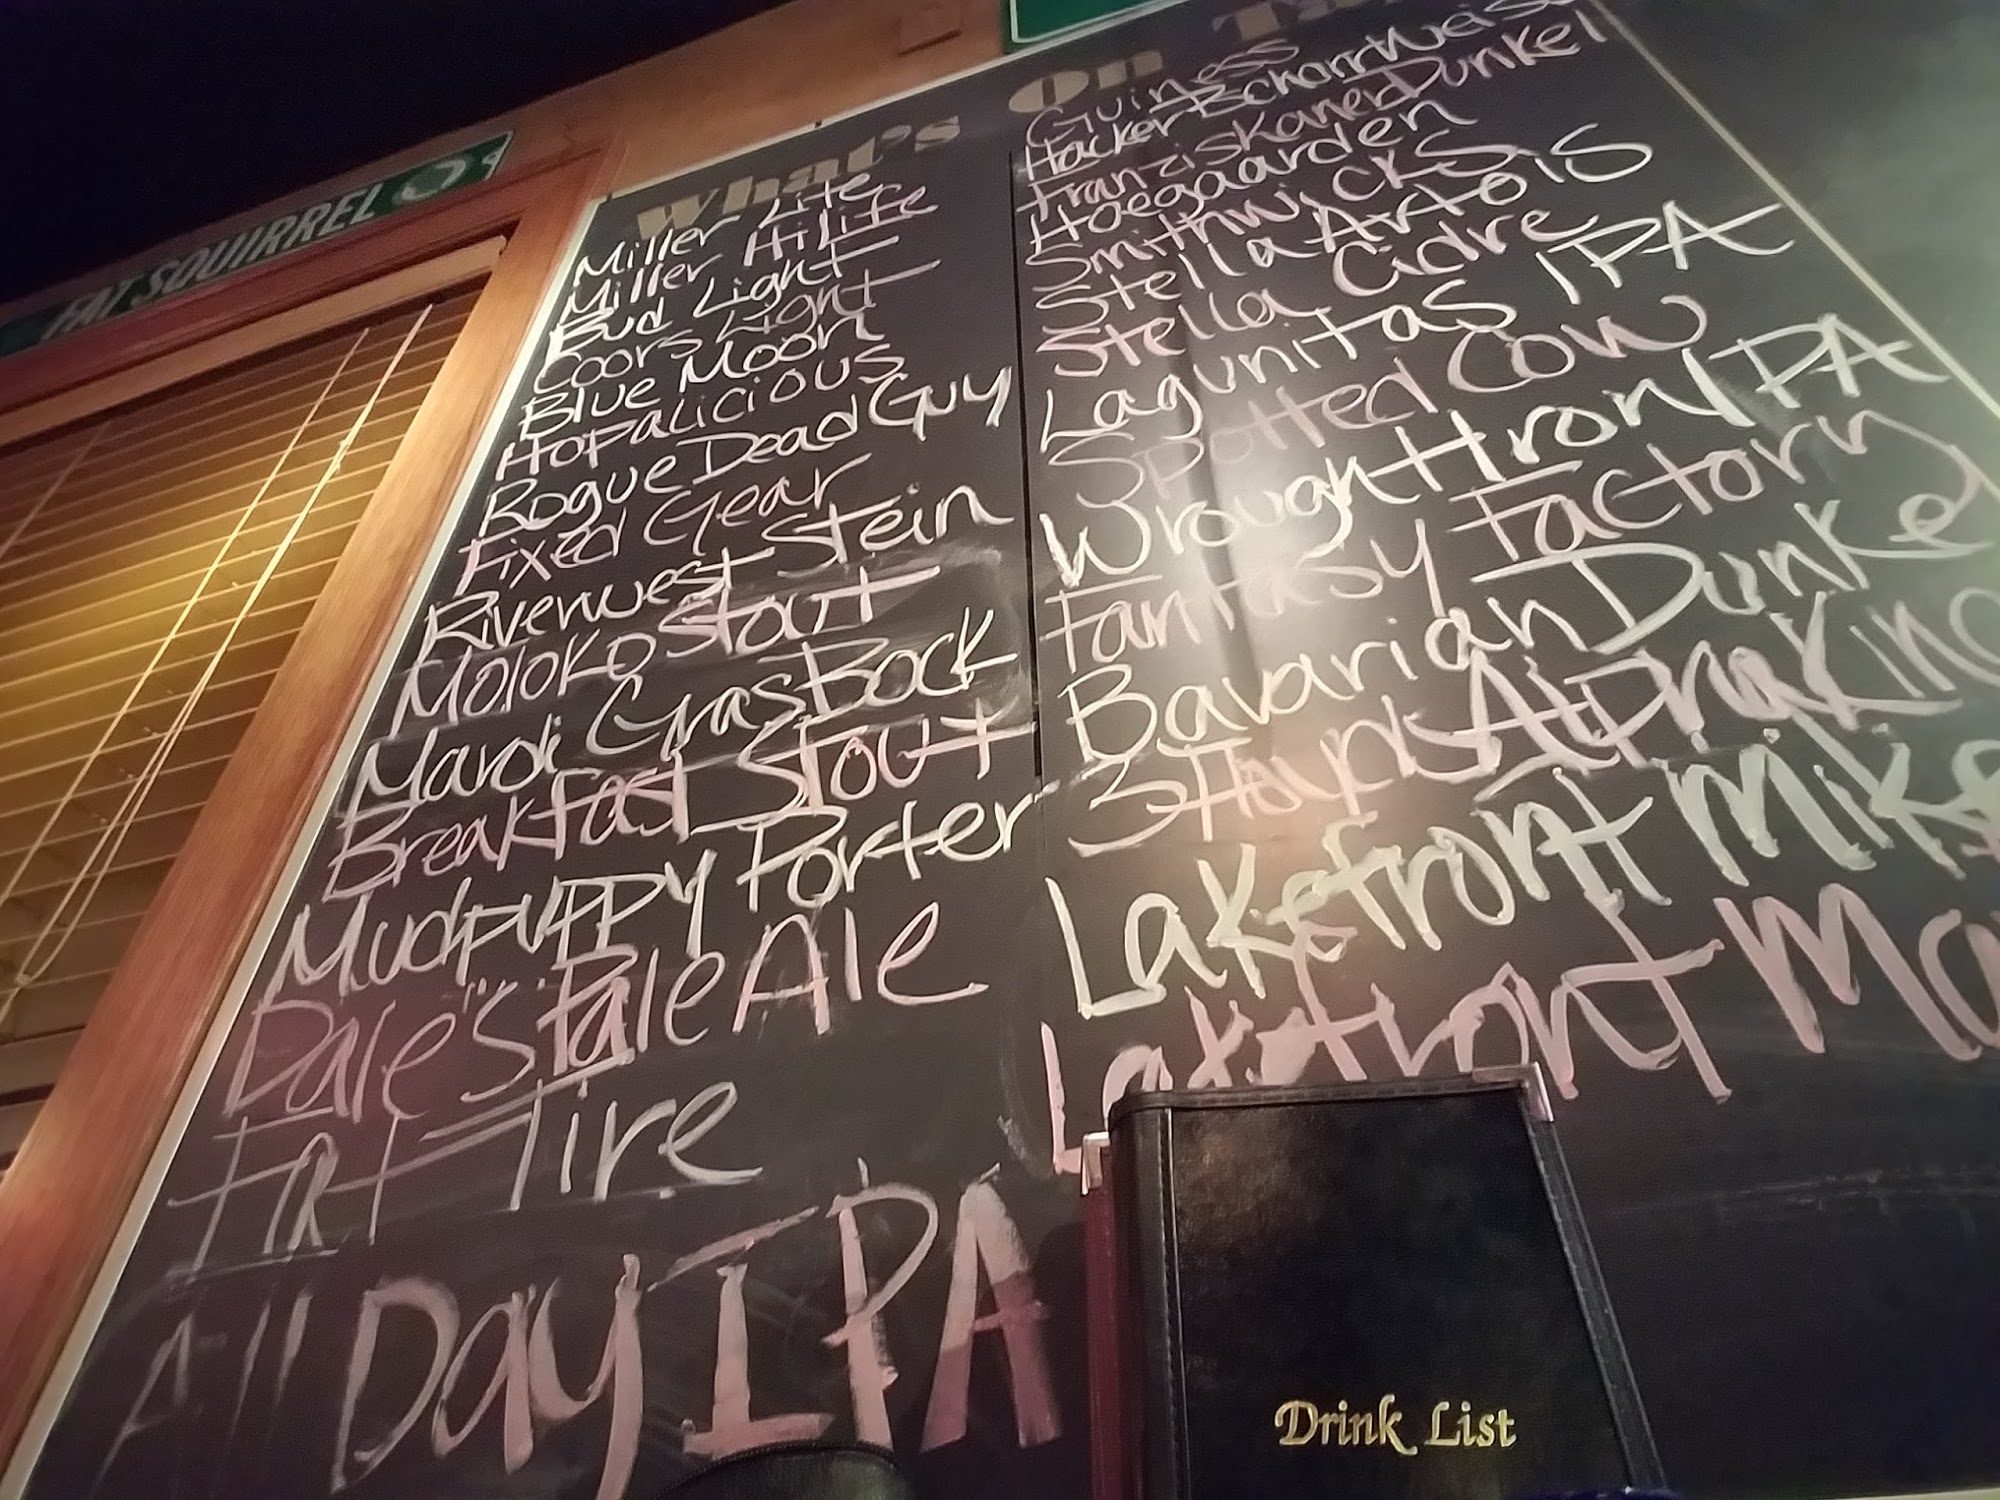 FAT SQUIRREL
What's On Ta
Miller Lite
Miller HiLife
Bud Light
Coors Light
Blue Moon
Hopalicious
Rogue Dead Guy
Fixed Gear
Riverwest Stein
Moloko Stout
Mardi Gras Bock
Breakfast Stout
Mudpuppy Porter
Dale's Pale Ale
Fat Tire
All Day IPA
Guiness
Hacker Pschorr Weiss
Franziskaner Dunkel
Hoegaarden
Smithwicks
Stella Artois
Stella Cidre
Lagunitas IPA
Spotted Cow
Wrought Iron IPA
Fantasy Factory
Bavarian Dunkel
3 Floyds Alpha King
Lakefront Mike
Lakefront Ma
Drink List